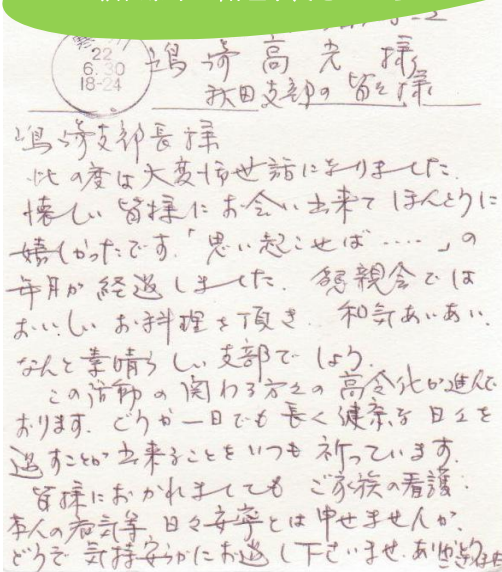 22
6.30
18-24
嶋﨑高光様
秋田支部の皆々様
嶋﨑支部長様
此の度は大変御世話になりました.
懐しい皆様にお会い出来てほんとうに
嬉しかったです.「思い起こせば……」の
年月が経過しました. 懇親会では
おいしいお料理を頂き. 和気あいあい.
なんと素晴らしい支部でしょう.
この治師の関わる方々の高令化が進んで
おります. どうか一日でも長く健康な日々を
過すことが出来ることをいつも祈っています.
皆様におかれましても ご家族の看護.
本人の病気等 日々安寧とは申せませんが.
どうぞ気持安らかにお過し下さいませ.